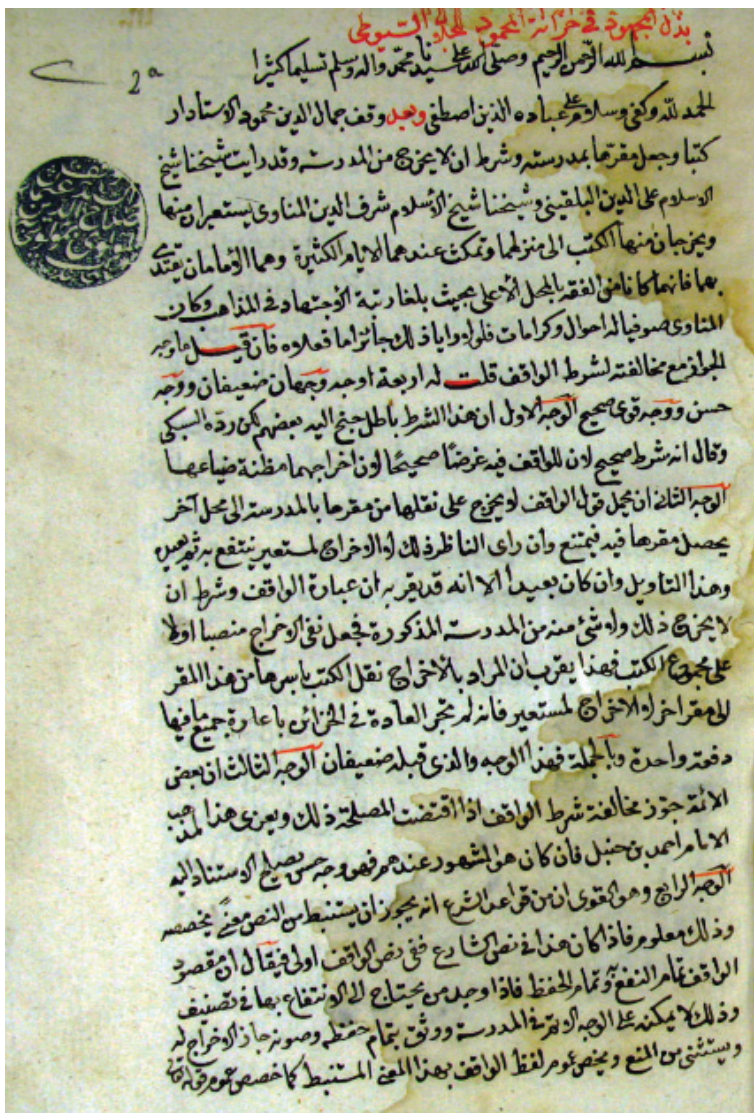 بذل المجهود في خزانة المحمود للجلال السيوطي
بسم الله الرحمن الرحيم وصلى الله على سيدنا محمد واله وسلم تسليما كثيرا
2a
الحمد لله وكفى وسلام على عباده الذين اصطفى وبعد وقف جمال الدين محمود الاستادار
كتبا وجعل مقرها بمدرسته وشرط ان لا يخرج من المدرسة وقد رايت شيخنا شيخ
الاسلام علم الدين البلقيني وشيخنا شيخ الاسلام شرف الدين المناوى يستعيران منها
ويخرجان منها الكتب الى منزلهما وتمكث عندهما الايام الكثيرة وهما الامامان يقتدى
بهما فانهما كانا في الفقه بالمحل الاعلى بحيث بلغا رتبة الاجتهاد في المذاهب وكان
المناوى صوفيا له احوال وكرامات فلولا رايا ذلك جائزا ما فعلاه فان قيل ما وجه
الجواز مع مخالفته لشرط الواقف قلت له اربعة اوجه وجهان ضعيفان ووجه
حسن ووجه قوى صحيح الوجه الاول ان هذا الشرط باطل جنح اليه بعضهم لكن رده السبكى
وقال انه شرط صحيح لان للواقف فيه غرضا صحيحا لان اخراجها مظنة ضياعها
الوجه الثانى ان يحمل قول الواقف لا يخرج على نقلها من مقرها بالمدرسة الى محل آخر
يحصل مقرها فيه فيمتنع وان راى الناظر ذلك لا الاخراج لمستعير ينتفع به ثم يعيد
وهذا التاويل وان كان بعيدا الا انه قد يقربه ان عبارة الواقف وشرط ان
لا يخرج ذلك ولا شئ منه من المدرسة المذكورة فجعل نفى الاخراج منصبا اولا
على مجموع الكتب فهذا يقرب ان المراد بالاخراج نقل الكتب باسرها من هذا المقر
الى مقر اخر لا الاخراج لمستعير فانه لم تجر العادة في الخزائن باعارة جميع ما فيها
دفعة واحدة وبالجملة فهذا الوجه والذى قبله ضعيفان الوجه الثالث ان بعض
الائمة جوز مخالفة شرط الواقف اذا اقتضت المصلحة ذلك ويعزى هذا لمذهب
الامام احمد بن حنبل فان كان هو المشهور عندهم فهو وجه حسن يصلح الاستناد اليه
الوجه الرابع وهو القوى ان من قواعد الشرع انه يجوز ان يستنبط من النص معنى يخصصه
وذلك معلوم فاذا كان هذا في نص الشارع ففى نص الواقف اولى فيقال ان مقصود
الواقف تمام النفع وتمام الحفظ فاذا وجد من يحتاج الى الانتفاع بها في تصنيف
وذلك لا يمكنه على الوجه الاتم في المدرسة ووثق بتمام حفظه وصونه جاز الاخراج له
ويستثنى من المنع ويخص عموم لفظ الواقف بهذا المعنى المستنبط كما خصص عموم قوله تعالى